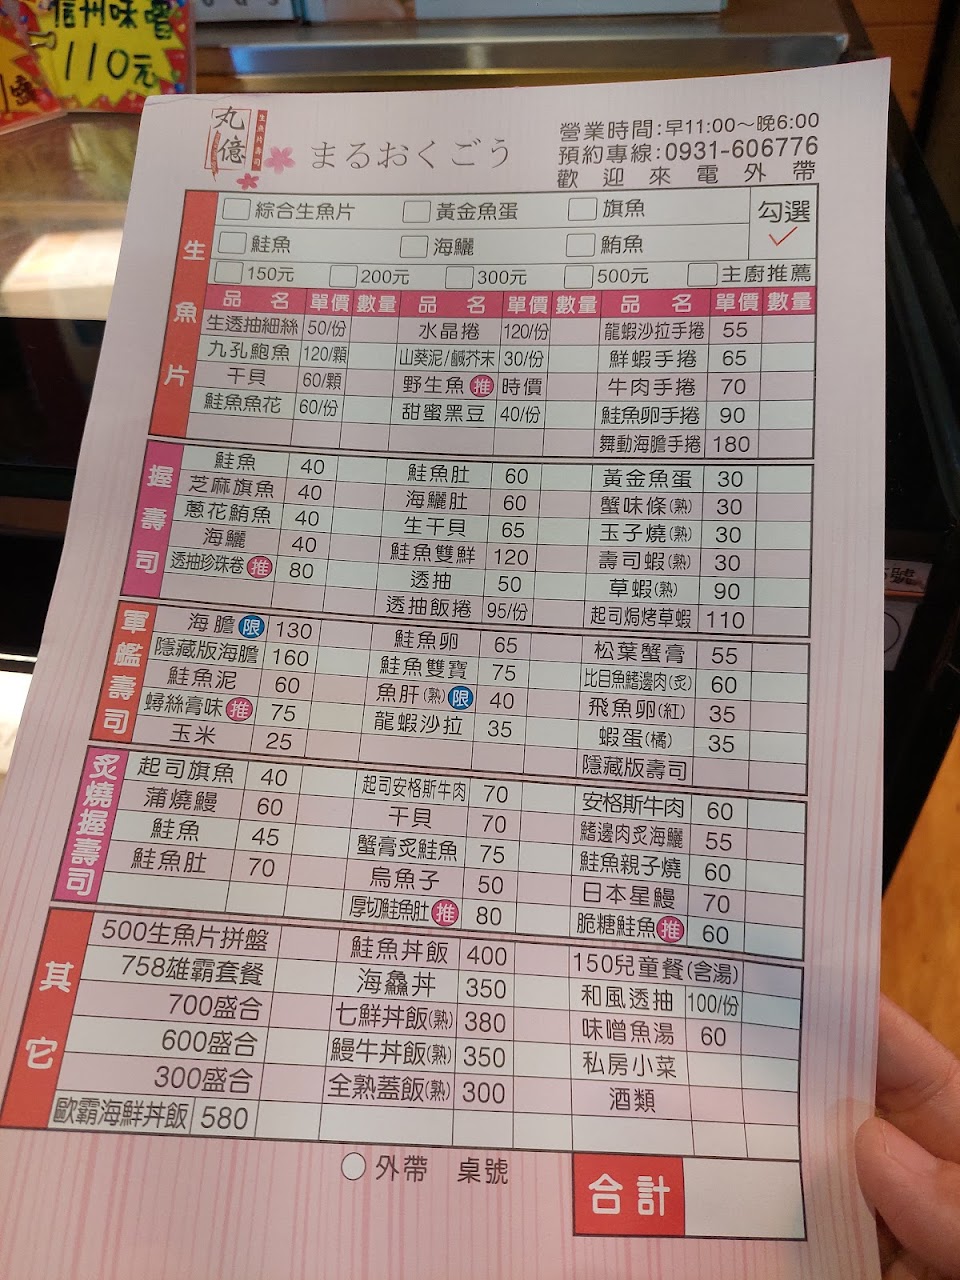 信州味噌
110元
丸億
生魚片壽司
まるおくごう
營業時間:早11:00～晚6:00
預約專線:0931-606776
歡迎來電外帶
生魚片
綜合生魚片 黃金魚蛋 旗魚 勾選
鮭魚 海鱺 鮪魚
150元 200元 300元 500元 主廚推薦
品名 單價 數量 品名 單價 數量 品名 單價 數量
生透抽細絲 50/份 水晶捲 120/份 龍蝦沙拉手捲 55
九孔鮑魚 120/顆 山葵泥/鹹芥末 30/份 鮮蝦手捲 65
干貝 60/顆 野生魚 推 時價 牛肉手捲 70
鮭魚魚花 60/份 甜蜜黑豆 40/份 鮭魚卵手捲 90
舞動海膽手捲 180
握壽司
鮭魚 40 鮭魚肚 60 黃金魚蛋 30
芝麻旗魚 40 海鱺肚 60 蟹味條(熟) 30
蔥花鮪魚 40 生干貝 65 玉子燒(熟) 30
海鱺 40 鮭魚雙鮮 120 壽司蝦(熟) 30
透抽珍珠卷 推 80 透抽 50 草蝦(熟) 90
透抽飯捲 95/份 起司焗烤草蝦 110
軍艦壽司
海膽 限 130 鮭魚卵 65 松葉蟹膏 55
隱藏版海膽 160 鮭魚雙寶 75 比目魚鰭邊肉(炙) 60
鮭魚泥 60 魚肝(熟) 限 40 飛魚卵(紅) 35
蟳絲膏味 推 75 龍蝦沙拉 35 蝦蛋(橘) 35
玉米 25 隱藏版壽司
炙燒握壽司
起司旗魚 40 起司安格斯牛肉 70 安格斯牛肉 60
蒲燒鰻 60 干貝 70 鰭邊肉炙海鱺 55
鮭魚 45 蟹膏炙鮭魚 75 鮭魚親子燒 60
鮭魚肚 70 烏魚子 50 日本星鰻 70
厚切鮭魚肚 推 80 脆糖鮭魚 推 60
其它
500生魚片拼盤 鮭魚丼飯 400 150兒童餐(含湯)
758雄霸套餐 海鱻丼 350 和風透抽 100/份
700盛合 七鮮丼飯(熟) 380 味噌魚湯 60
600盛合 鰻牛丼飯(熟) 350 私房小菜
300盛合 全熟蓋飯(熟) 300 酒類
歐霸海鮮丼飯 580
外帶 桌號
合計